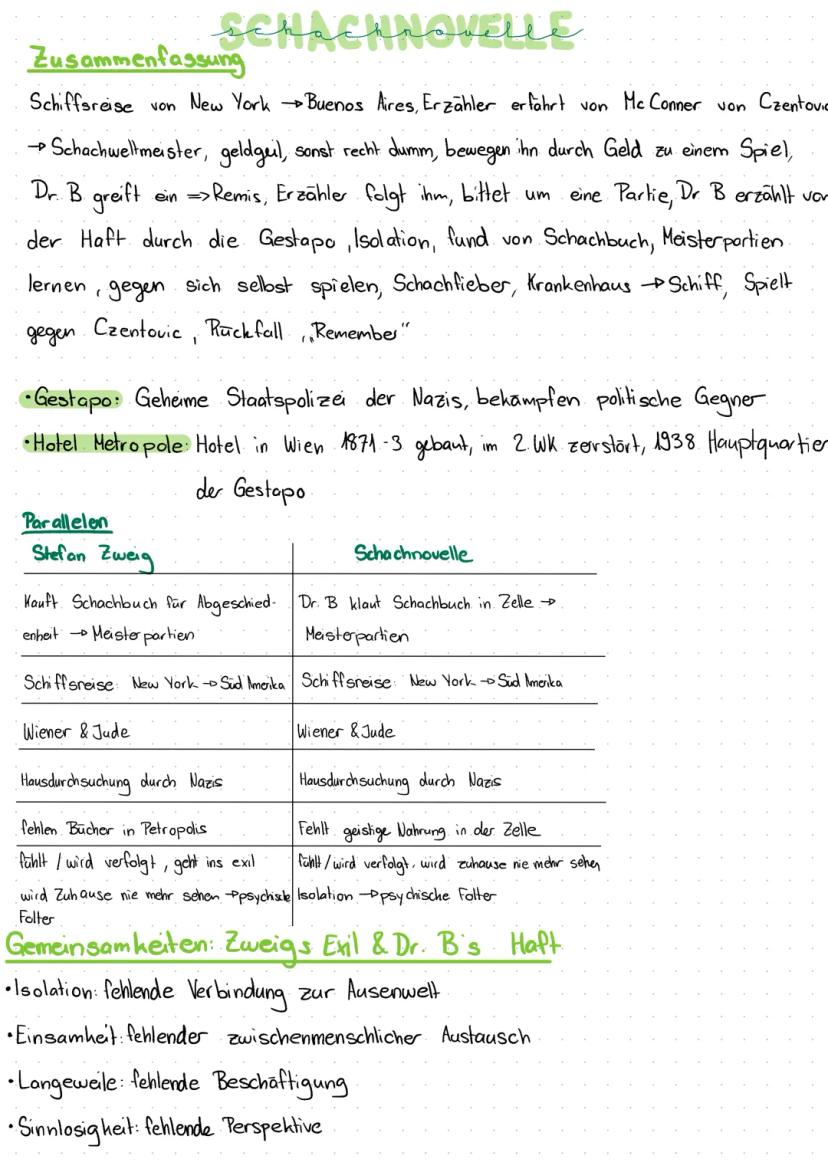 SCHACHNOVELLE
schachnovelle
Zusammenfassung
Schiffsreise von New York → Buenos Aires, Erzähler erfährt von Mc Conner von Czentovic
→ Schachweltmeister, geldgeil, sonst recht dumm, bewegen ihn durch Geld zu einem Spiel,
Dr. B greift ein => Remis, Erzähler folgt ihm, bittet um eine Partie, Dr B erzählt von
der Haft durch die Gestapo, Isolation, fund von Schachbuch, Meisterpartien
lernen, gegen sich selbst spielen, Schachfieber, Krankenhaus → Schiff, Spielt
gegen Czentovic, Rückfall „Remember“
• Gestapo: Geheime Staatspolizei der Nazis, bekämpfen politische Gegner
• Hotel Metropole: Hotel in Wien 1871-3 gebaut, im 2. WK zerstört, 1938 Hauptquartier
der Gestapo
Parallelen
Stefan Zweig Schachnovelle
Kauft Schachbuch für Abgeschied- Dr. B klaut Schachbuch in Zelle →
enheit → Meisterpartien Meisterpartien
Schiffsreise: New York → Süd Amerika Schiffsreise: New York → Süd Amerika
Wiener & Jude Wiener & Jude
Hausdurchsuchung durch Nazis Hausdurchsuchung durch Nazis
fehlen Bücher in Petropolis Fehlt geistige Nahrung in der Zelle
fühlt / wird verfolgt, geht ins exil fühlt / wird verfolgt, wird zuhause nie mehr sehen
wird Zuhause nie mehr sehen → psychische Isolation → psychische Folter
Folter
Gemeinsamkeiten: Zweigs Exil & Dr. B's Haft
• Isolation: fehlende Verbindung zur Ausenwelt
• Einsamkeit: fehlender zwischenmenschlicher Austausch
• Langeweile: fehlende Beschäftigung
• Sinnlosigheit: fehlende Perspektive